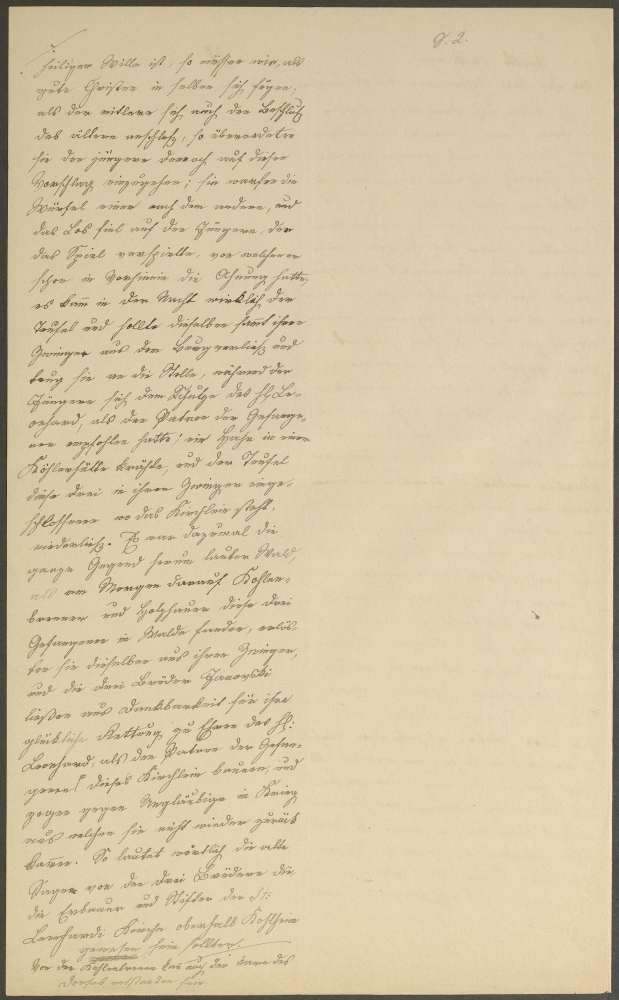 S. 2.
heiliger Wille ist, so müssen wir, als
gute Christen in selben sich fügen;
als der mittlere sich auch den Beschluß
des ältern anschloß, so überredeten
sie den jüngern darnach auf diesen
Vorschlag einzugehen; sie warfen die
Würfel einer nach dem andern, und
das Los fiel auf den Jüngern, der
das Spiel verspielte, von welchem er
schon in Vorhinein die Ahnung hatte,
es kam in der Nacht wirklich der
Teufel und holte dieselben samt ihren
Zwinger aus dem Burgverließ und
trug sie an die Stelle, während der
Jüngere sich dem Schutze des hl. Le-
onhard, als den Patron der Gefange-
nen empfohlen hatte; ein Hahn in einer
Köhlerhütte krähte, und der Teufel
diese drei in ihren Zwinger einge-
schlossenen wo das Kirchlein steht,
niederließ. Es war dazumal die
ganze Gegend herum lauter Wald,
als am Morgen darauf Kohlen-
brenner und Holzhauer diese drei
Gefangenen im Walde fanden, erlös-
ten sie dieselben aus ihren Zwinger,
und die drei Brüder
ließen aus Dankbarkeit für ihre
glückliche Rettung zu Ehren des hl:
Leonhard, als den Patron der Gefan-
genen dieses Kirchlein bauen, und
zogen gegen Ungläubige in Krieg
aus welchen sie nicht wieder zurück
kamen. So lautet wörtlich die alte
Sage von den drei Brüdern die
die Erbauer und Stifter der St:
Leonhardi Kirche oberhalb
gewesen sein sollten
Von den Kohlenbrennern kam auch der Name des
Dorfes